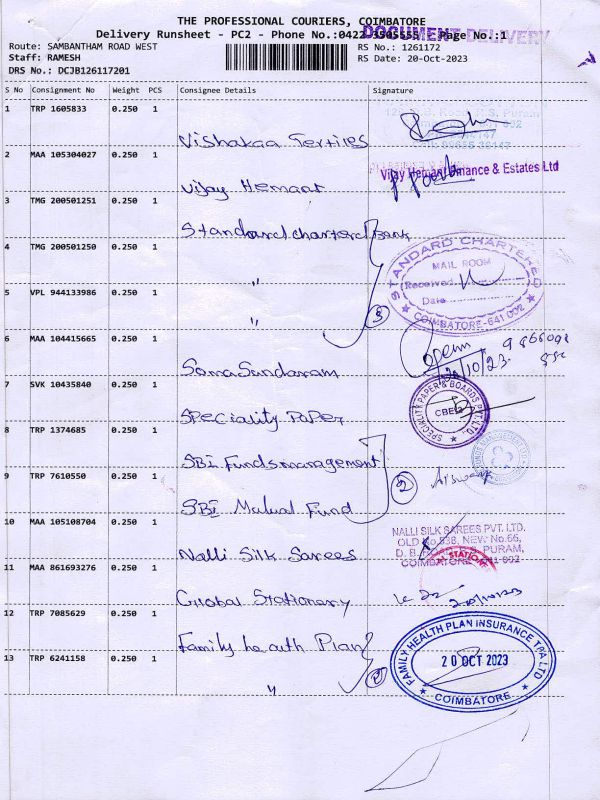 THE PROFESSIONAL COURIERS, COIMBATORE
Delivery Runsheet - PC2 - Phone No.:0422 Page No.:1
DOCUMENT DELIVERY
Route: SAMBANTHAM ROAD WEST RS No.: 1261172
Staff: RAMESH RS Date: 20-Oct-2023
DRS No.: DCJB126117201
S No Consignment No Weight PCS Consignee Details Signature
1 TRP 1605833 0.250 1
Vishakaa Textiles
2 MAA 105304027 0.250 1
Vijay Hemant Finance & Estates Ltd
Vijay Hemant
3 TMG 200501251 0.250 1
Standard chartered Bank
4 TMG 200501250 0.250 1
STANDARD CHARTERED
MAIL ROOM
Received
Date
COIMBATORE-641 002
"
5 VPL 944133986 0.250 1
" 3
6 MAA 104415665 0.250 1
20/10/23
SomaSundaram
7 SVK 10435840 0.250 1
SPECIALITY PAPER & BOARDS PVT. LTD.
CBE-2
Speciality Paper
8 TRP 1374685 0.250 1
SBI Funds management
9 TRP 7610550 0.250 1
2
SBI Mutual Fund
10 MAA 105108704 0.250 1
NALLI SILK SAREES PVT. LTD.
OLD No.538, NEW No.66,
PURAM,
COIMBATORE
Nalli Silk Sarees
11 MAA 861693276 0.250 1
Global Stationery
20/10/2023
12 TRP 7085629 0.250 1
Family health Plan
13 TRP 6241158 0.250 1
FAMILY HEALTH PLAN INSURANCE TPA LTD
20 OCT 2023
COIMBATORE
" 2